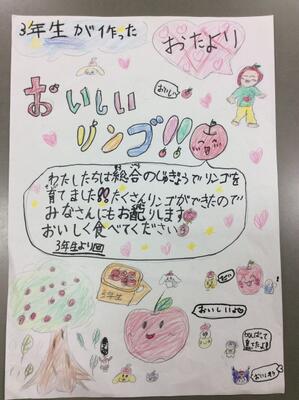 3年生が作った
おたより
おいしい
リンゴ!!
おいしい
わたしたちは総合のじゅぎょうでリンゴを
育てました!!たくさんリンゴができたので
みなさんにもお配りします
おいしく食べてください
3年生より
3年生
おいしいよ
がんばって
育てたよ!